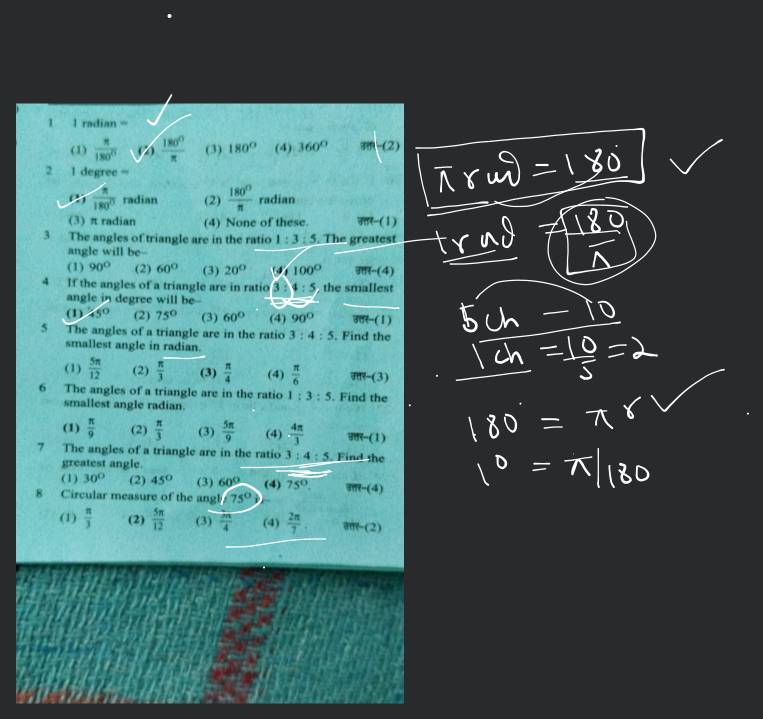 1 1 radian =
(1) π/180⁰ (2) 180⁰/π (3) 180⁰ (4) 360⁰ उत्तर-(2)
2 1 degree =
(1) π/180⁰ radian (2) 180⁰/π radian
(3) π radian (4) None of these. उत्तर-(1)
3 The angles of triangle are in the ratio 1 : 3 : 5. The greatest
angle will be-
(1) 90⁰ (2) 60⁰ (3) 20⁰ (4) 100⁰ उत्तर-(4)
4 If the angles of a triangle are in ratio 3 : 4 : 5, the smallest
angle in degree will be-
(1) 45⁰ (2) 75⁰ (3) 60⁰ (4) 90⁰ उत्तर-(1)
5 The angles of a triangle are in the ratio 3 : 4 : 5. Find the
smallest angle in radian.
(1) 5π/12 (2) π/3 (3) π/4 (4) π/6 उत्तर-(3)
6 The angles of a triangle are in the ratio 1 : 3 : 5. Find the
smallest angle radian.
(1) π/9 (2) π/3 (3) 5π/9 (4) 4π/3 उत्तर-(1)
7 The angles of a triangle are in the ratio 3 : 4 : 5. Find the
greatest angle.
(1) 30⁰ (2) 45⁰ (3) 60⁰ (4) 75⁰. उत्तर-(4)
8 Circular measure of the angl 75⁰
(1) π/3 (2) 5π/12 (3) π/4 (4) 2π/7 . उत्तर-(2)
π rad = 180°
1 rad = 180/π
5 ch – 10
1 ch = 10/5 = 2
180° = π r
1⁰ = π/180